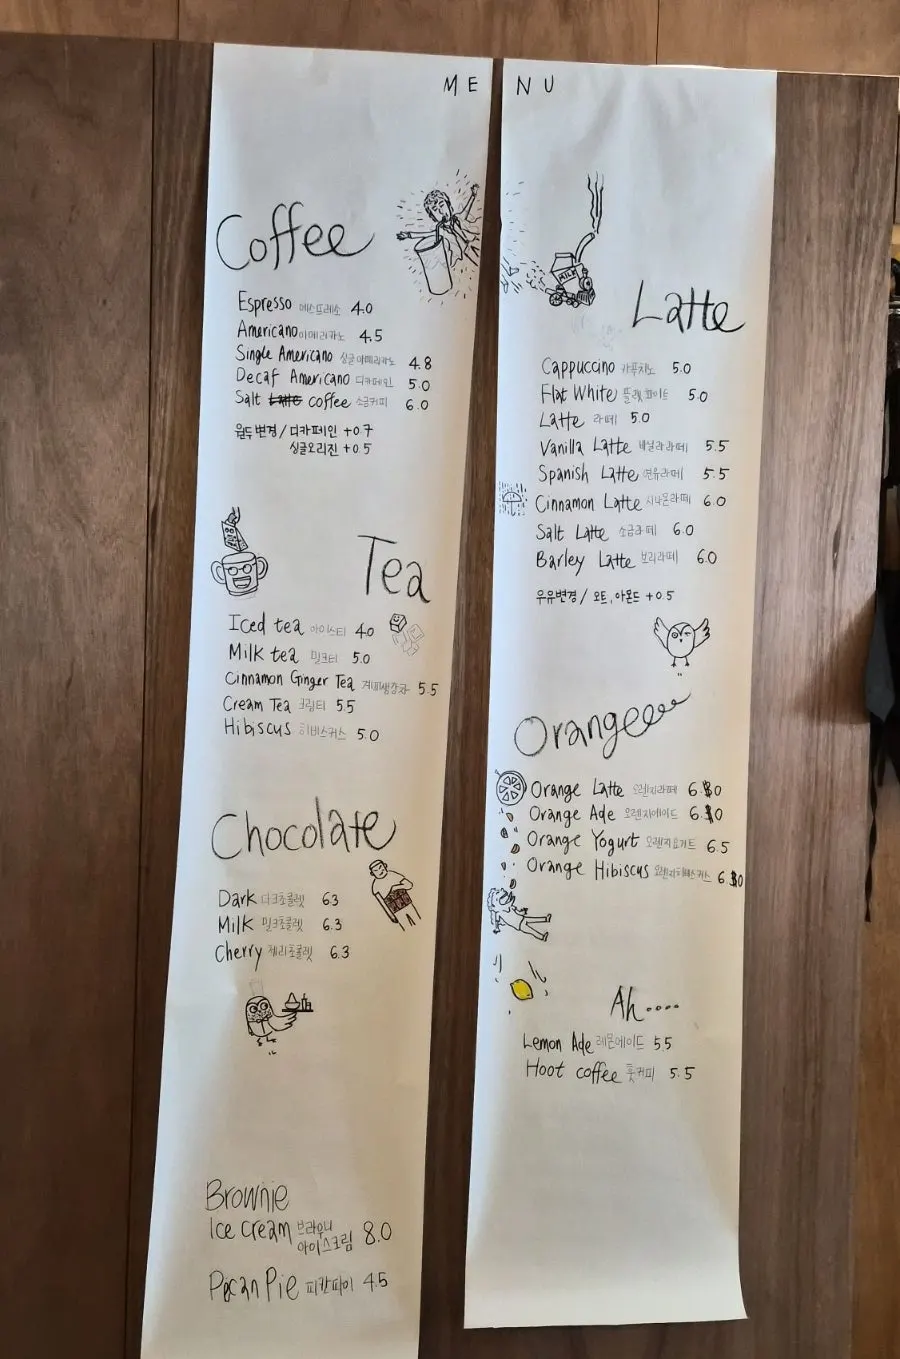 ME NU
Coffee
Espresso 에스프레소 4.0
Americano 아메리카노 4.5
Single Americano 싱글아메리카노 4.8
Decaf Americano 디카페인 5.0
Salt Latte coffee 소금커피 6.0
원두변경 / 디카페인 +0.7
싱글오리진 +0.5
Tea
Iced tea 아이스티 4.0
Milk tea 밀크티 5.0
Cinnamon Ginger Tea 계피생강차 5.5
Cream Tea 크림티 5.5
Hibiscus 히비스커스 5.0
Chocolate
Dark 다크초콜렛 6.3
Milk 밀크초콜렛 6.3
Cherry 체리초콜렛 6.3
Brownie
Ice cream 브라우니 아이스크림 8.0
Pecan Pie 피칸파이 4.5
MILK
Latte
Cappuccino 카푸치노 5.0
Flat White 플랫화이트 5.0
Latte 라떼 5.0
Vanilla Latte 바닐라라떼 5.5
Spanish Latte 연유라떼 5.5
Cinnamon Latte 시나몬라떼 6.0
Salt Latte 소금라떼 6.0
Barley Latte 보리라떼 6.0
우유변경 / 오트, 아몬드 +0.5
Orangeeee
Orange Latte 오렌지라떼 6.0
Orange Ade 오렌지에이드 6.0
Orange Yogurt 오렌지요거트 6.5
Orange Hibiscus 오렌지히비스커스 6.0
Ah....
Lemon Ade 레몬에이드 5.5
Hoot coffee 훗커피 5.5